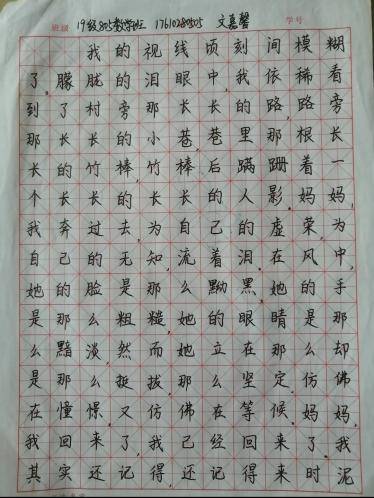 班级 19级805教学班 17610280505 文嘉馨 学号
我的视线顷刻间模糊
了,朦胧的泪眼中,我依稀看
到了村旁那长长的路,路旁
那长长的小巷,巷里那根长
长的竹棒,竹棒后蹒跚着一
个长长的长长的人影,妈妈,
我奔过去,为自己的虚荣,为
自己的无知,流着泪,在风中,
她的脸是那么黝黑,她的手
是那么粗糙,她的眼睛是那
么黯淡,然而她立在那么却
是那么挺拔,那么坚定,仿佛
在憧憬又仿佛在等候,妈妈,
我回来了,我已经回来了,我
其实还记得,还记得来时泥